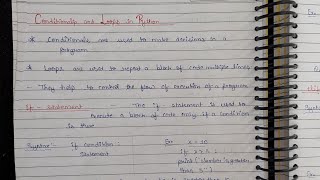 Conditionals and Loops in Python
* Conditionals are used to make decisions in a program
* Loops are used to repeat a block of code multiple times
- They help to control the flow of execution of a program
If - Statement - The if statement is used to
execute a block of code only if a condition
is true
Syntax:- if condition:
Statement
Ex x = 10
if x > 5:
print("Number is greater
than 5")